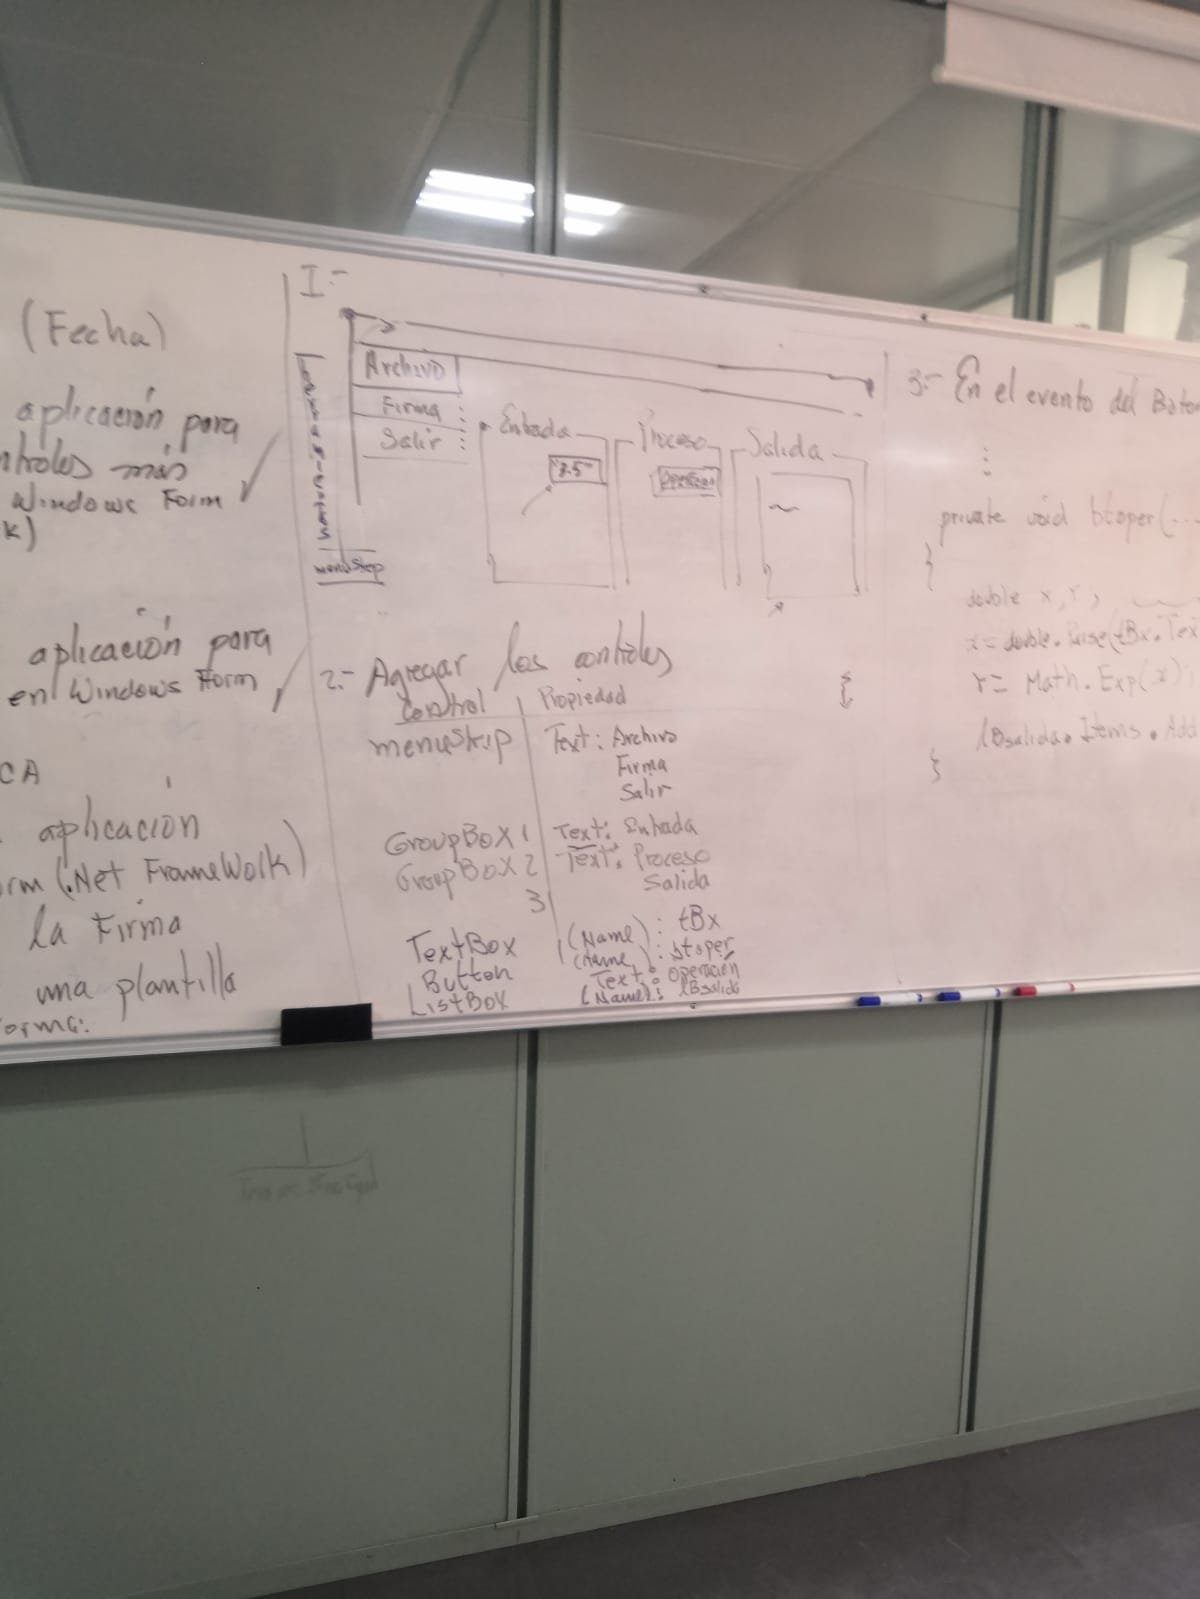 (Fecha)
aplicación para
ntroles más
Windows Form
k)
aplicación para
en Windows Form
CA
aplicación
orm (.Net FrameWork)
la Firma
una plantilla
orma:
I.-
Archivo
Firma
Salir
menuStrip
Entrada
"3.5"
Proceso
Operación
Salida
2.- Agregar los controles
Control Propiedad
menuStrip Text: Archivo
Firma
Salir
GroupBox 1 Text: Entrada
GroupBox 2 Text: Proceso
3 Salida
TextBox (Name): tBx
Button (Name): btoper
Text: Operación
ListBox (Name): lBsalida
3.- En el evento del Boton
⋮
private void btoper(...
{
double x, r;
x = double.Parse(tBx.Tex
r = Math.Exp(x);
lBsalida.Items.Add
}